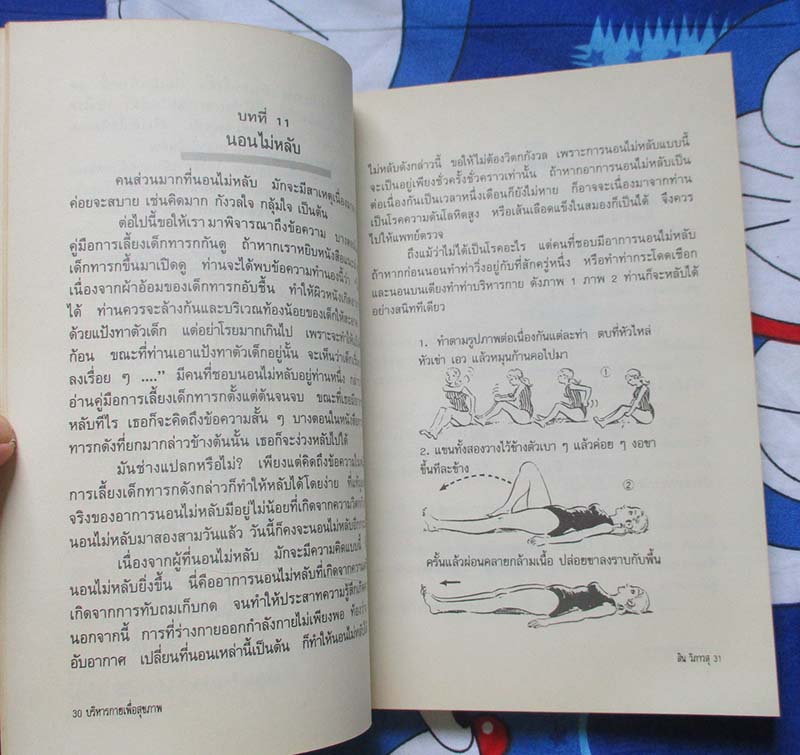 บทที่ 11
นอนไม่หลับ
คนส่วนมากที่นอนไม่หลับ มักจะมีสาเหตุเนื่อง
ค่อยจะสบาย เช่นคิดมาก กังวลใจ กลุ้มใจ เป็นต้น
ต่อไปนี้ขอให้เรามาพิจารณาถึงข้อความ
คู่มือการเลี้ยงเด็กทารกกันดู ถ้าหากเราหยิบหนังสือ
เด็กทารกขึ้นมาเปิดดู ท่านจะได้พบข้อความทำนองนี้ว่า
เนื่องจากผ้าอ้อมของเด็กทารกอับชื้น ทำให้ผิวหนัง
ได้ ท่านควรจะล้างก้นและบริเวณท้องน้อยของเด็กให้
ด้วยแป้งทาตัวเด็ก แต่อย่าโรยมากเกินไป เพราะจะทำให้
ก้อน ขณะที่ท่านเอาแป้งทาตัวเด็กอยู่นั้น จะเห็นว่าเด็ก
ลงเรื่อย ๆ ....” มีคนที่ชอบนอนไม่หลับอยู่ท่านหนึ่ง
อ่านคู่มือการเลี้ยงเด็กทารกตั้งแต่ต้นจนจบ ขณะที่เธอ
หลับทีไร เธอก็จะคิดถึงข้อความสั้น ๆ บางตอนในหนังสือ
ทารกดังที่ยกมากล่าวข้างต้นนั้น เธอก็จะง่วงหลับไปได้
มันช่างแปลกหรือไม่? เพียงแต่คิดถึงข้อความใน
การเลี้ยงเด็กทารกดังกล่าวก็ทำให้หลับได้โดยง่าย
จริงของอาการนอนไม่หลับมีอยู่ไม่น้อยที่เกิดจากความ
นอนไม่หลับมาสองสามวันแล้ว วันนี้ก็คงจะนอนไม่หลับ
เนื่องจากผู้ที่นอนไม่หลับ มักจะมีความคิดแบบนี้
นอนไม่หลับยิ่งขึ้น นี่คืออาการนอนไม่หลับที่เกิดจาก
เกิดจากการทับถมเก็บกด จนทำให้ประสาทความรู้สึก
นอกจากนี้ การที่ร่างกายออกกำลังกายไม่เพียงพอ
อับอากาศ เปลี่ยนที่นอนเหล่านี้เป็นต้น ก็ทำให้นอนไม่หลับ
30 บริหารกายเพื่อสุขภาพ
ไม่หลับดังกล่าวนี้ ขอให้ไม่ต้องวิตกกังวล เพราะการนอนไม่หลับแบบนี้
จะเป็นอยู่เพียงชั่วครั้งชั่วคราวเท่านั้น ถ้าหากอาการนอนไม่หลับเป็น
ต่อเนื่องกันเป็นเวลาหนึ่งเดือนก็ยังไม่หาย ก็อาจจะเนื่องมาจากท่าน
เป็นโรคความดันโลหิตสูง หรือเส้นเลือดแข็งในสมองก็เป็นได้ จึงควร
ไปให้แพทย์ตรวจ
ถึงแม้ว่าไม่ได้เป็นโรคอะไร แต่คนที่ชอบมีอาการนอนไม่หลับ
ถ้าหากก่อนนอนทำท่าวิ่งอยู่กับที่สักครู่หนึ่ง หรือทำท่ากระโดดเชือก
และนอนบนเตียงทำท่าบริหารกาย ดังภาพ 1 ภาพ 2 ท่านก็จะหลับได้
อย่างสนิททีเดียว
1. ทำตามรูปภาพต่อเนื่องกันแต่ละท่า ตบที่หัวไหล่
หัวเข่า เอว แล้วหมุนก้านคอไปมา
①
2. แขนทั้งสองวางไว้ข้างตัวเบา ๆ แล้วค่อย ๆ งอขา
ขึ้นทีละข้าง
②
ครั้นแล้วผ่อนคลายกล้ามเนื้อ ปล่อยขาลงราบกับพื้น
ลิน วิภาวสุ 31